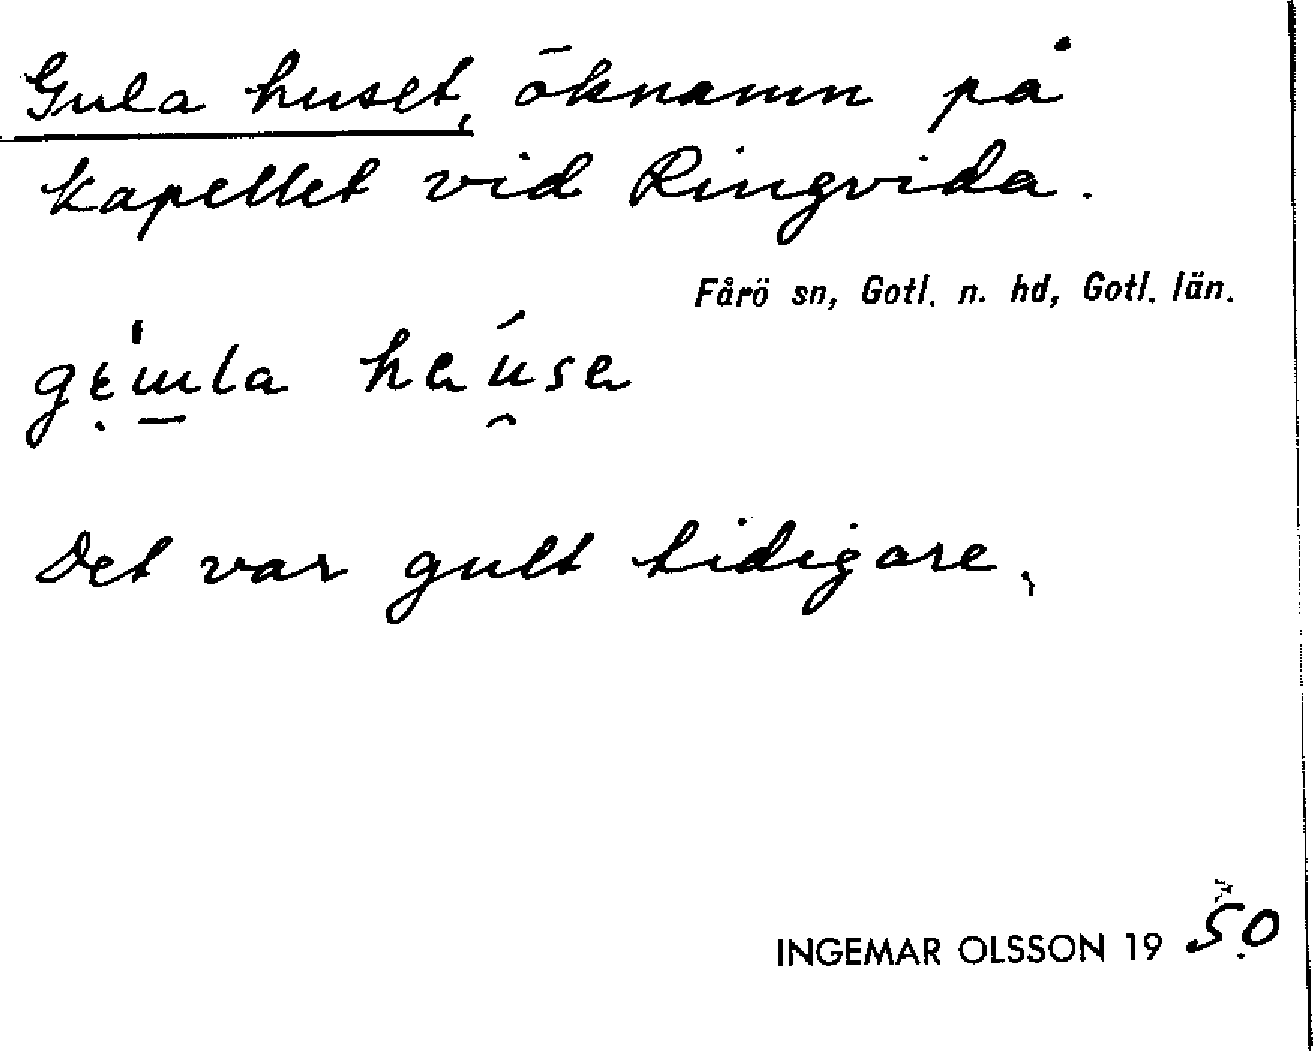 Gula huset, öknamn på
kapellet vid Ringvida.
Fårö sn, Gotl. n. hd, Gotl. län.
Det var gult tidigare.
INGEMAR OLSSON 19 50